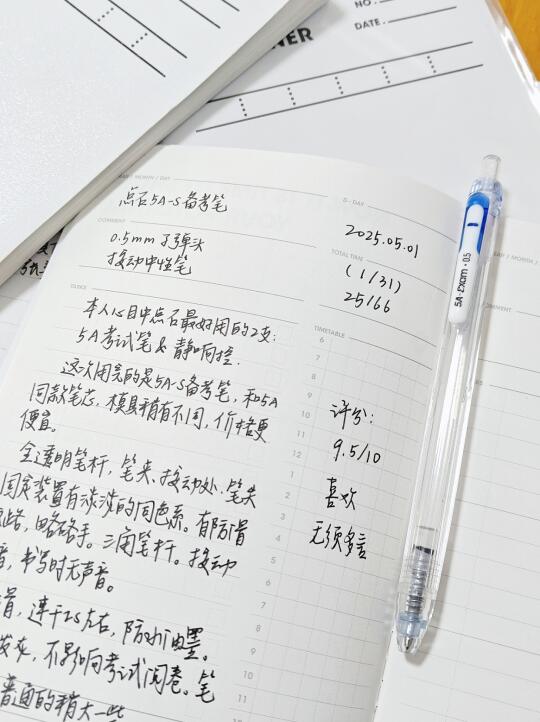 NO.
DATE.
NNER
DAY / MONTH / DAY
点石5A-S备考笔
D-DAY
2025.05.01
COMMENT
0.5mm 子弹头
按动中性笔
TOTAL TIME
(1/31)
25/66
TASKS
本人心目中点石最好用的2支:
5A考试笔&静响控.
这次用完的是5A-S备考笔,和5A
同款笔芯.模具稍有不同,价格更
便宜。
全透明笔杆,笔夹.按动处.笔尖
固定装置有淡淡的同色系。有防滑
纹路,略硌手。三角笔杆。按动
音,书写时无声音。
滑,速干2S左右,防水油墨。
发灰,不影响考试阅卷。笔
普通的稍大一些
TIMETABLE
6
7
8
9
10
11
12
1
2
3
4
5
6
7
8
9
10
11
评分:
9.5/10
喜欢
无须多言
5A·Exam·0.5
DAY / MONTH /
COMMENT